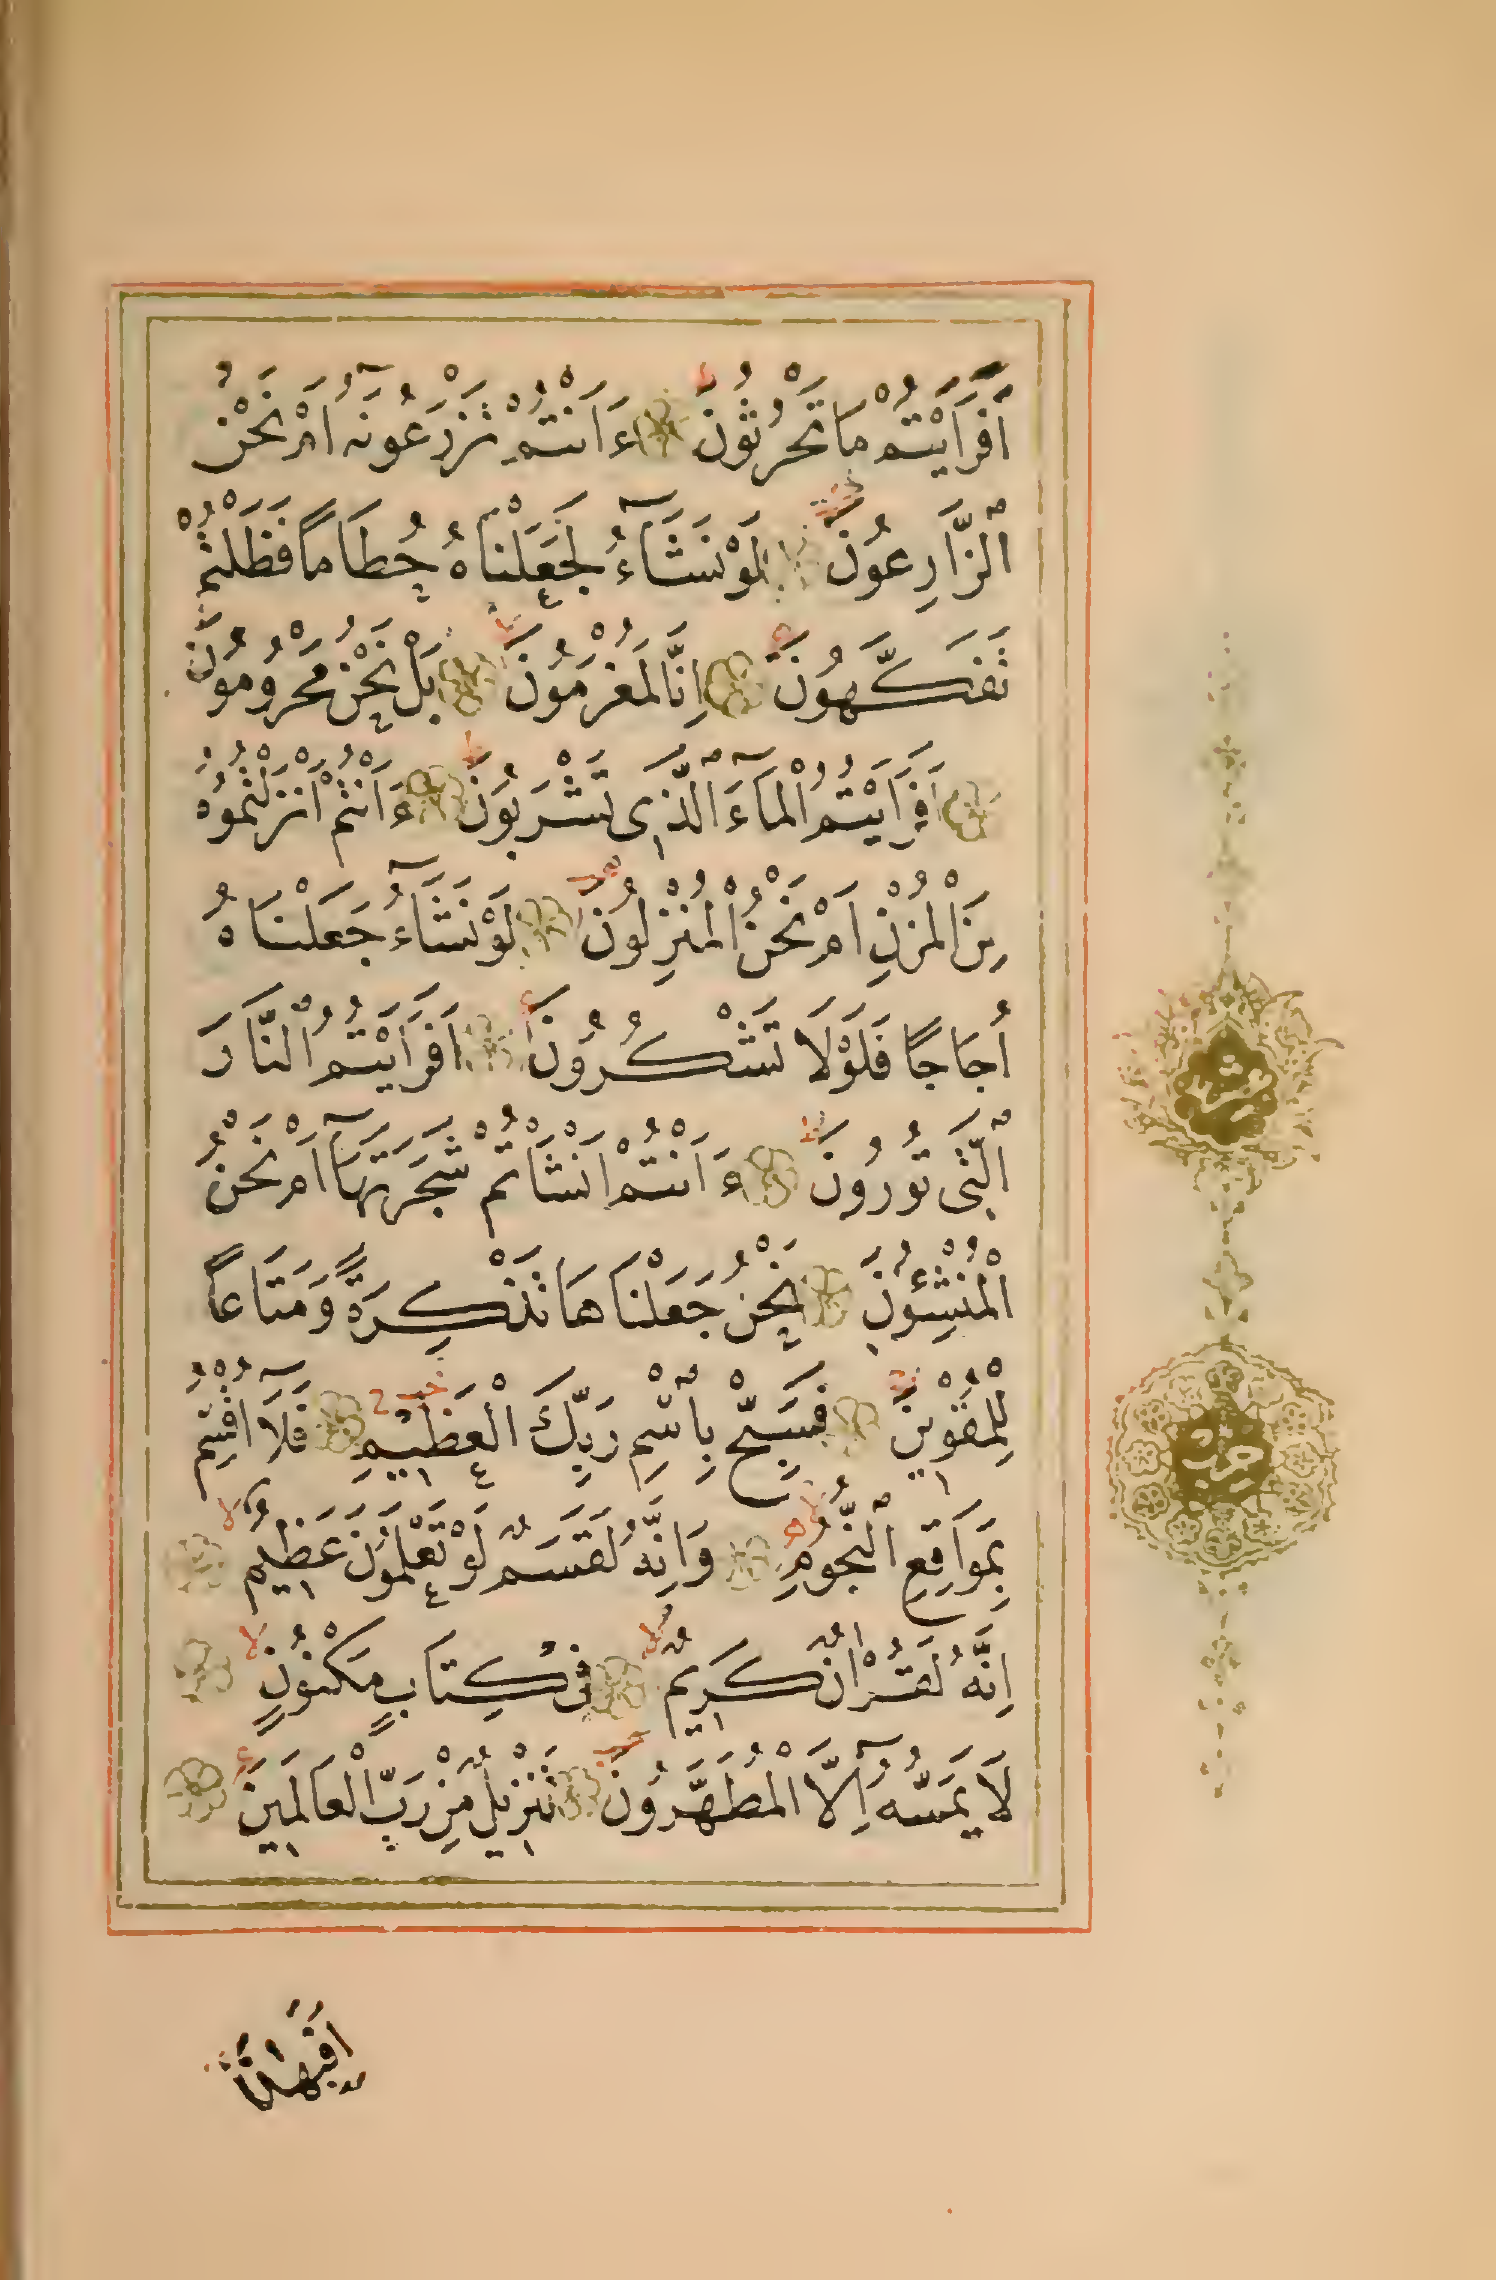 اَفَرَاَيْتُمْ مَا تَحْرُثُونَ ءَاَنْتُمْ تَزْرَعُونَهُٓ اَمْ نَحْنُ
الزَّارِعُونَ لَوْ نَشَٓاءُ لَجَعَلْنَاهُ حُطَامًا فَظَلْتُمْ
تَفَكَّهُونَ اِنَّا لَمُغْرَمُونَ بَلْ نَحْنُ مَحْرُومُونَ
اَفَرَاَيْتُمُ الْمَٓاءَ الَّذِي تَشْرَبُونَ ءَاَنْتُمْ اَنْزَلْتُمُوهُ
مِنَ الْمُزْنِ اَمْ نَحْنُ الْمُنْزِلُونَ لَوْ نَشَٓاءُ جَعَلْنَاهُ
اُجَاجًا فَلَوْلَا تَشْكُرُونَ اَفَرَاَيْتُمُ النَّارَ
الَّتِي تُورُونَ ءَاَنْتُمْ اَنْشَاْتُمْ شَجَرَتَهَٓا اَمْ نَحْنُ
الْمُنْشِؤُنَ نَحْنُ جَعَلْنَاهَا تَذْكِرَةً وَمَتَاعًا
لِلْمُقْوِينَ فَسَبِّحْ بِاسْمِ رَبِّكَ الْعَظِيمِ فَلَٓا اُقْسِمُ
بِمَوَاقِعِ النُّجُومِ وَاِنَّهُ لَقَسَمٌ لَوْ تَعْلَمُونَ عَظِيمٌ
اِنَّهُ لَقُرْاٰنٌ كَرِيمٌ فِي كِتَابٍ مَكْنُونٍ
لَا يَمَسُّهُٓ اِلَّا الْمُطَهَّرُونَ تَنْزِيلٌ مِنْ رَبِّ الْعَالَمِينَ
اَفَبِهٰذَا